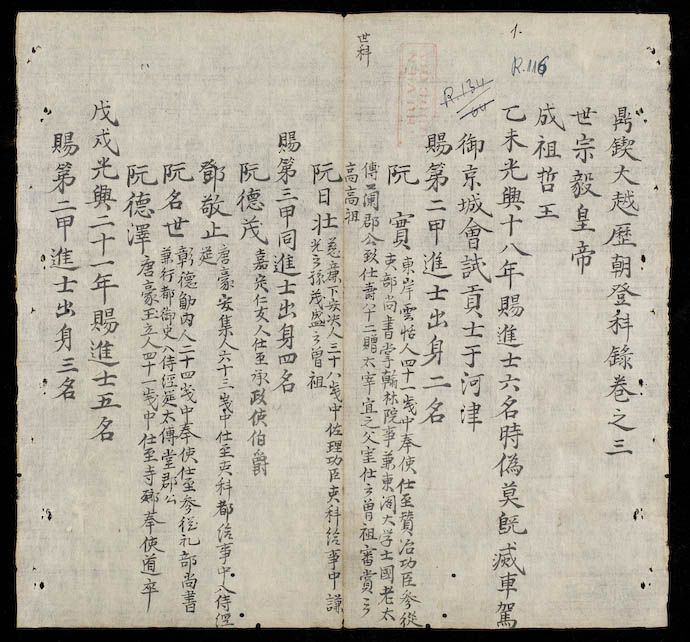 鼎鍥大越歷朝登科錄卷之三
世宗毅皇帝
成祖哲王
乙未光興十八年賜進士六名時偽莫既滅車駕
御京城會試貢士于河津
賜第二甲進士出身二名
阮實 東岸雲恬人四十一歲中奉使仕至贊治功臣參從
吏部尚書掌翰林院事兼東閣大学士國老太
傅蘭郡公致仕壽八十二贈太宰宜之父室仕之曾祖審賞之
高高祖
阮日壯 慈廉下安決人三十八歲中佐理功臣吏科給事中謙
光之孫茂盛之曾祖
賜第三甲同進士出身四名
阮德茂 嘉定仁友人仕至承政使伯爵
鄧敬止 唐豪安集人六十三歲中仕至吏科都給事中入侍經
筵
阮名世 彰德內人二十四歲中奉使仕至參從礼部尚書
兼行都御史入侍經筵太傅堂郡公
阮德澤 唐豪王立人四十一歲中仕至寺卿奉使道卒
戊戌光興二十一年賜進士五名
賜第二甲進士出身三名
世科
1.
R.116
R.134